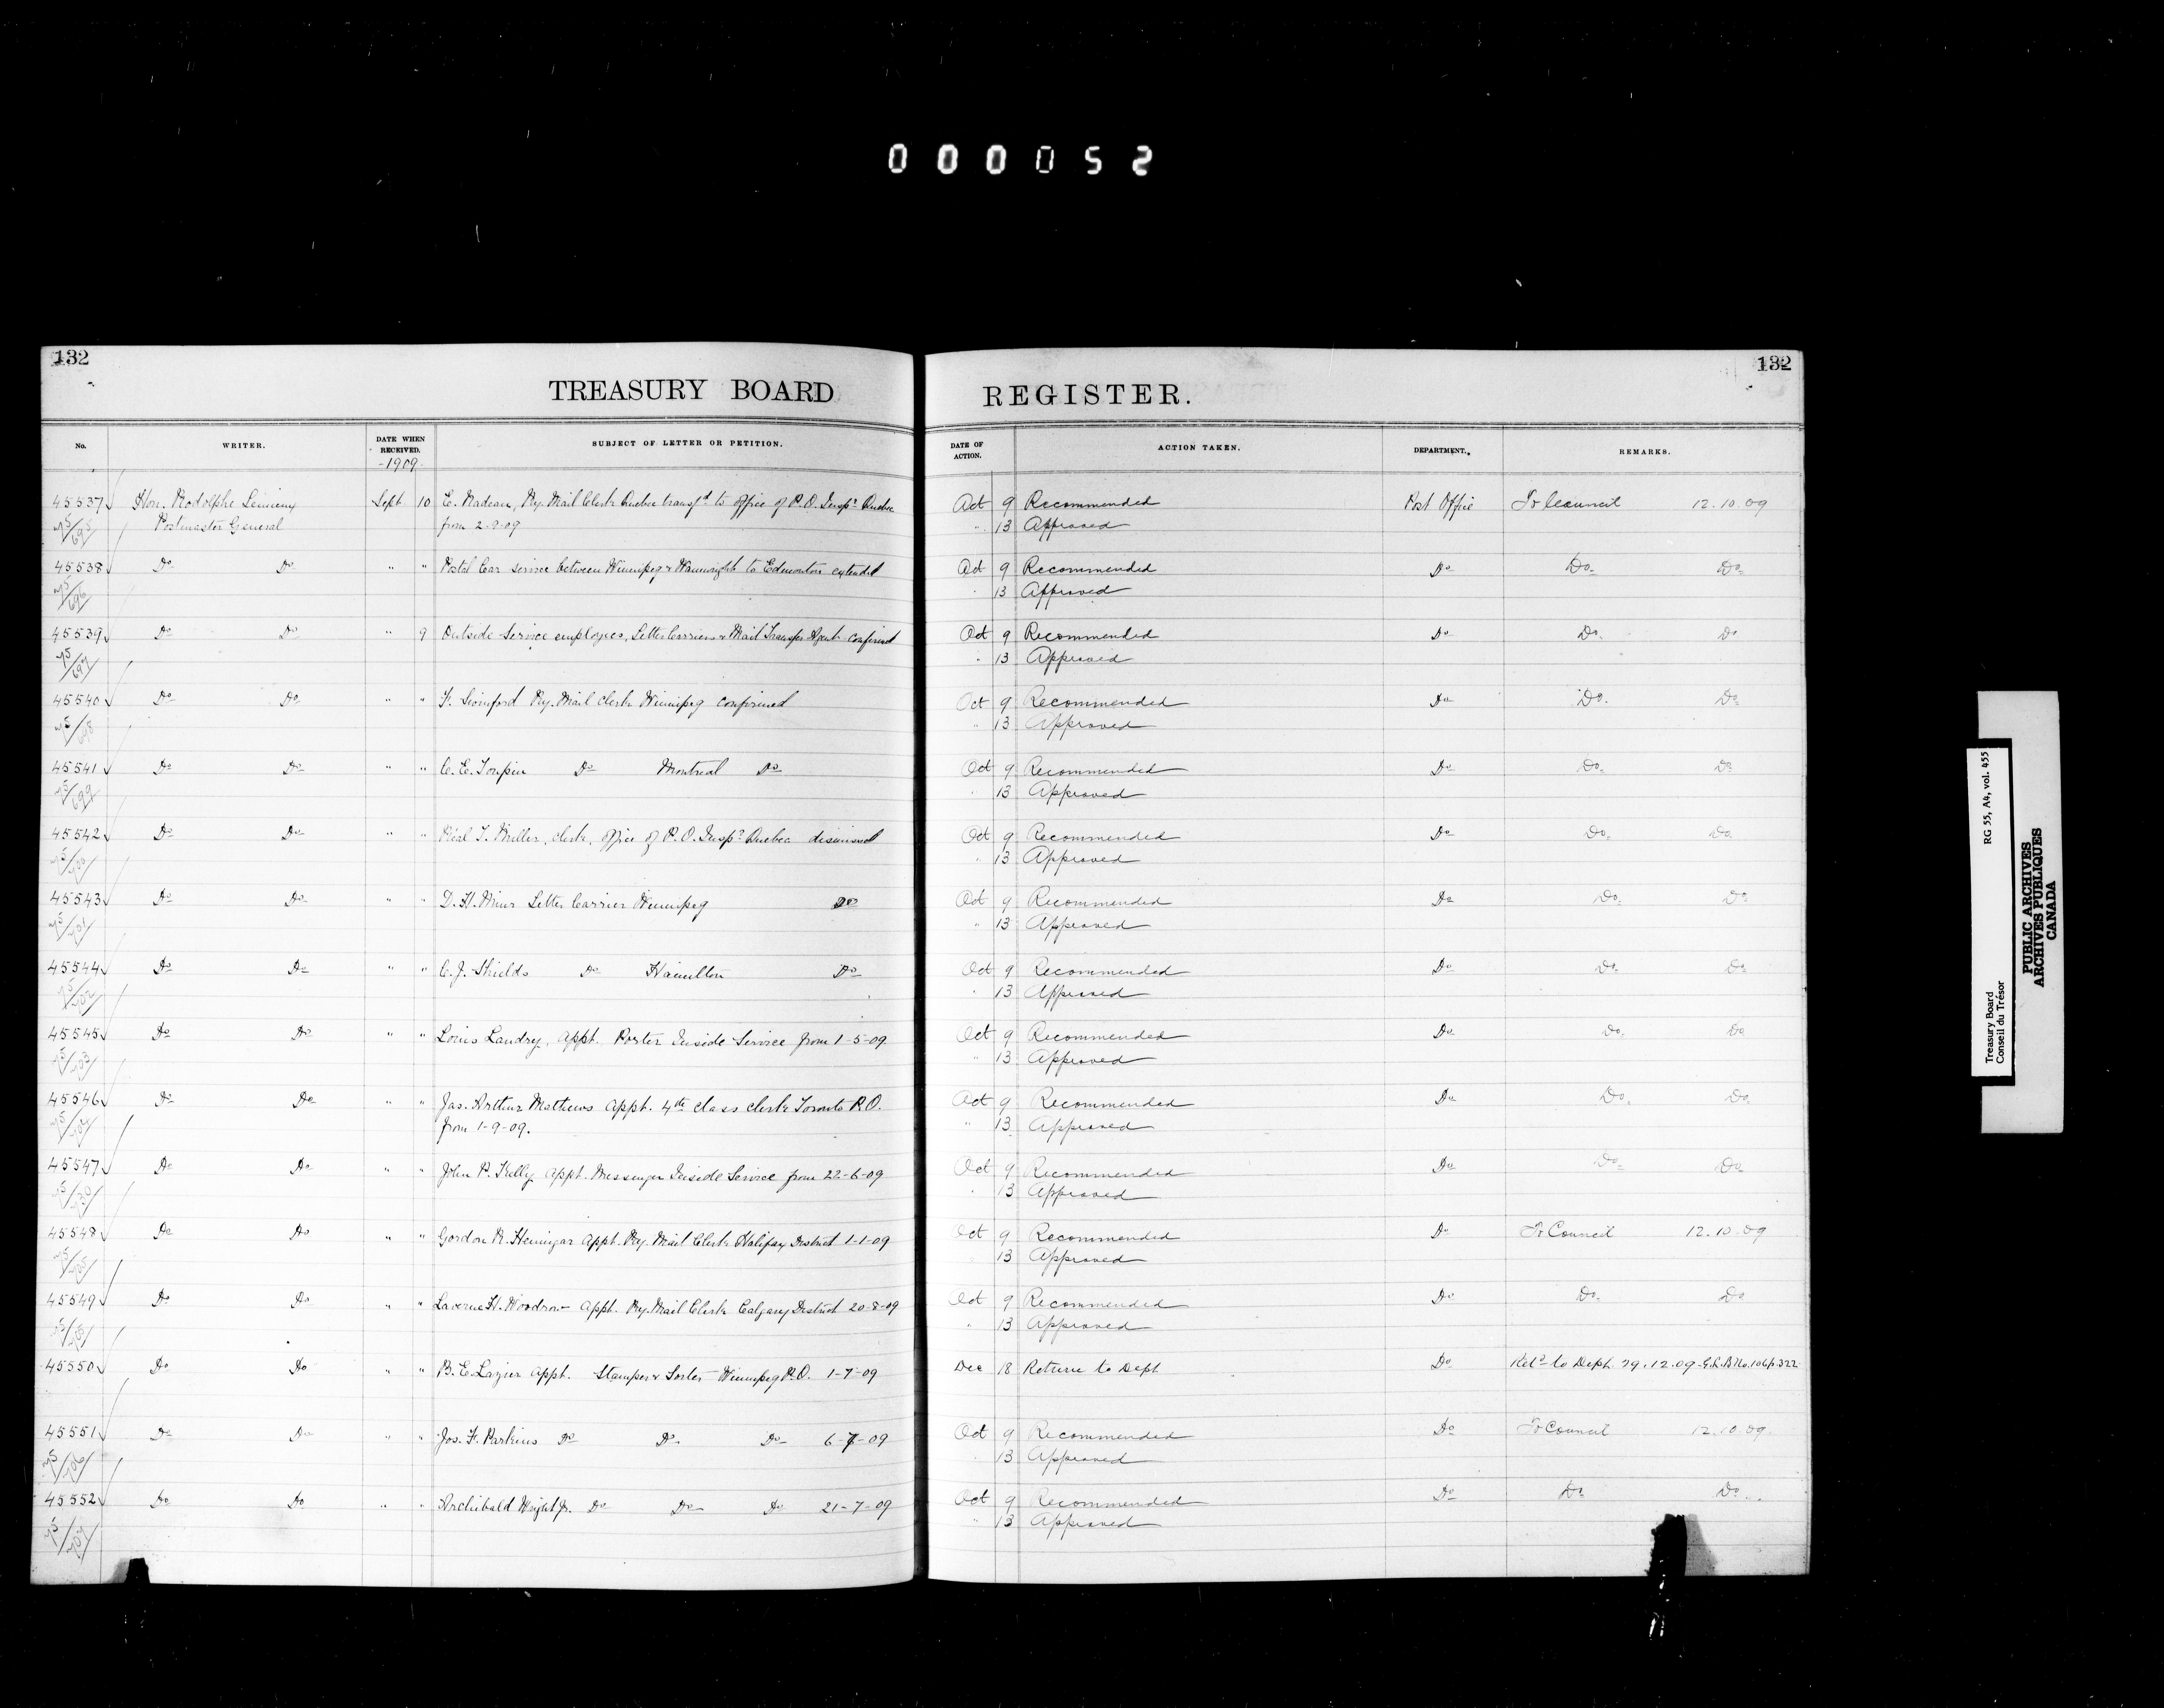 000052
132
132
TREASURY BOARD REGISTER.
No. WRITER. DATE WHEN RECEIVED. SUBJECT OF LETTER OR PETITION. DATE OF ACTION. ACTION TAKEN. DEPARTMENT. REMARKS.
-1909-
45537 Hon. Rodolphe Lemieux Sept 10 E. Nadeau, Ry. Mail Clerk Quebec transfd to office of P.O. Inspr Quebec Oct 9 Recommended Post Office To Council 12.10.09
75/695 Postmaster General from 2-9-09 " 13 Approved
45538 Do Do " " Postal Car service between Winnipeg & Wainwright to Edmonton extended Oct 9 Recommended Do Do. Do.
75/696 13 Approved
45539 Do Do " 9 Outside Service employees, Letter Carriers & Mail Transfer Agents confirmed Oct 9 Recommended Do Do. Do
75/697 13 Approved
45540 Do Do " " F. Ry. Mail Clerk Winnipeg confirmed Oct 9 Recommended Do Do. Do.
75/698 " 13 Approved
45541 Do Do " " C. E. Toupin Do Montreal Do Oct 9 Recommended Do Do. Do
75/699 13 Approved
45542 Do Do " " Réal T. Miller, clerk, office of P.O. Inspr Quebec dismissed Oct 9 Recommended Do Do. Do.
75/700 " 13 Approved
45543 Do Do " " D. H. Letter Carrier Winnipeg Do Oct 9 Recommended Do Do. Do.
75/701 " 13 Approved
45544 Do Do " " C. J. Shields Do Hamilton Do Oct 9 Recommended Do Do. Do.
75/702 13 Approved
45545 Do Do " " Louis Landry, appt. Porter Inside Service from 1-5-09 Oct 9 Recommended Do Do. Do
75/703 " 13 Approved
45546 Do Do " " Jas. Arthur Mathews appt. 4th class clerk Toronto P.O. Oct 9 Recommended Do Do. Do.
75/704 from 1-9-09. " 13 Approved
45547 Do Do " " John P. Kelly appt. Messenger Inside Service from 22-6-09 Oct 9 Recommended Do Do. Do.
13 Approved
45548 Do Do " " Gordon R. Hennigar appt. Ry. Mail Clerk Halifax District 1-1-09 Oct 9 Recommended Do To Council 12.10.09
13 Approved
45549 Do Do " " Laverne H. Woodrow appt. Ry. Mail Clerk Calgary District 20-8-09 Oct 9 Recommended Do Do. Do
13 Approved
45550 Do Do " " B. E. Lazier appt. Stamper & Sorter Winnipeg P.O. 1-7-09 Dec 18 Return to Dept Do Retd to Dept. 29.12.09-G.L.B No. 106 p. 322
45551 Do Do " " Jos. F. Parkins Do Do. Do 6-7-09 Oct 9 Recommended Do To Council 12.10.09.
75/706 13 Approved
45552 Do Do " " Archibald Wright Jr. Do Do Do 21-7-09 Oct 9 Recommended Do Do Do
75/707 " 13 Approved
Treasury Board RG 55, A4, vol. 455
Conseil du Trésor
PUBLIC ARCHIVES
ARCHIVES PUBLIQUES
CANADA